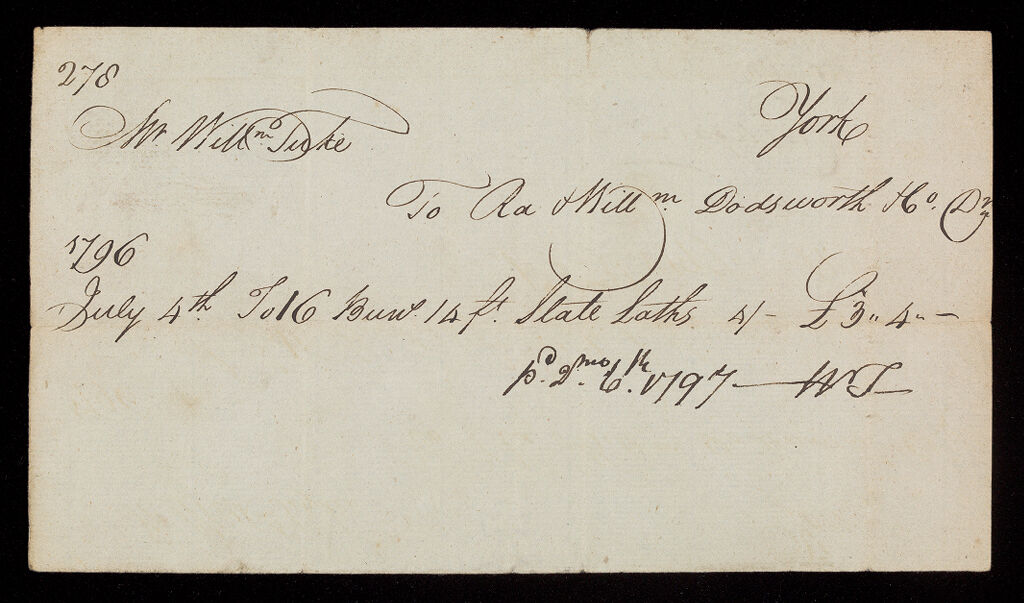 278
York
Mr. Willm. Tuke
To Ra & Willm Dodsworth & Co. Dr
1796
July 4th. To 16 Bun.s 14 ft. Slate Laths 4/- £3"4"-
pd. 2mo. 6th. 1797 — WT